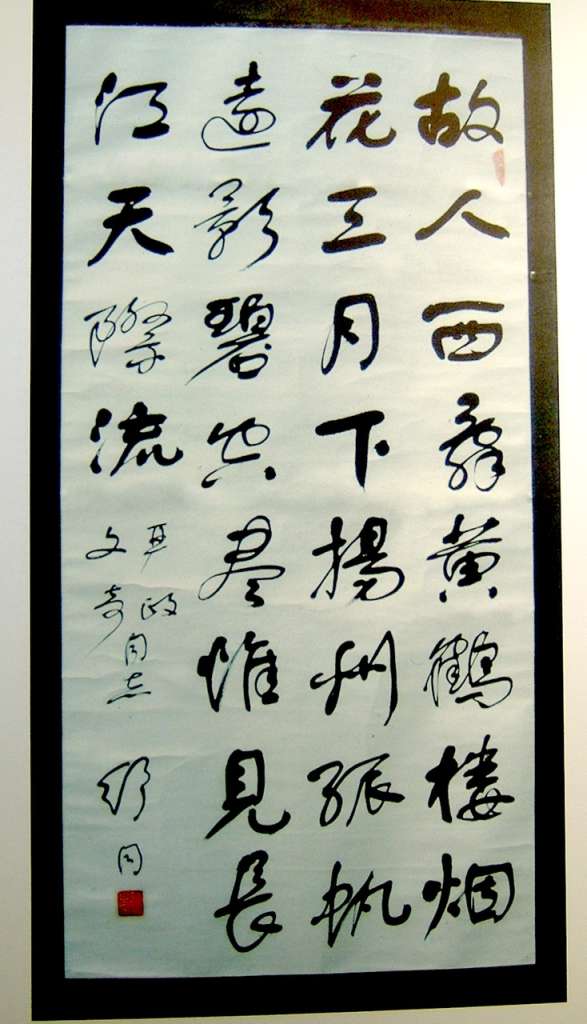 故人西辭黄鶴楼烟
花三月下揚州孤帆
遠影碧空尽惟見長
江天際流
政
文奇
同志
舒同